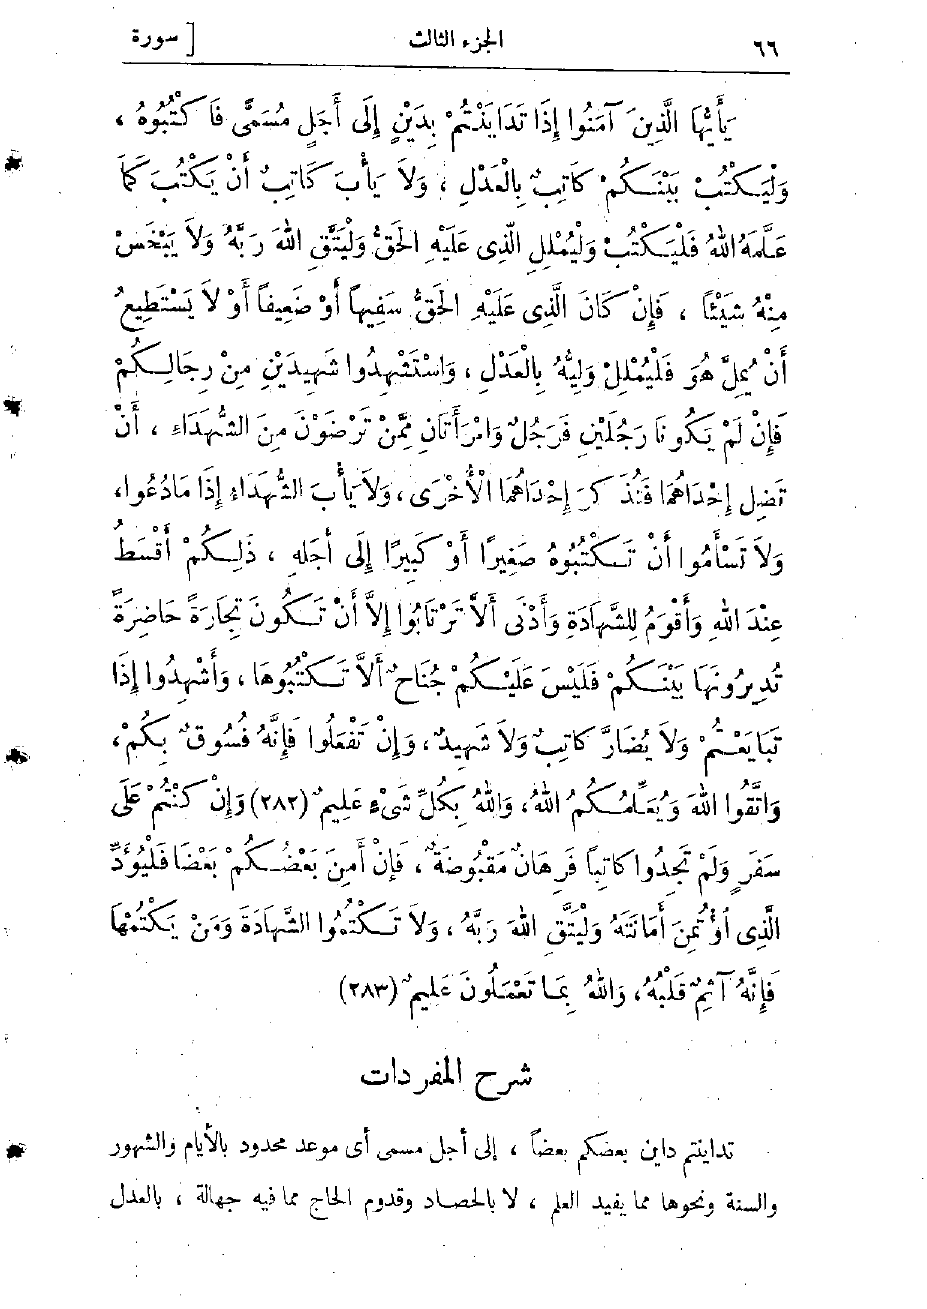 ٦٦ الجزء الثالث [ سورة
يَأَيُّهَا الَّذِينَ آمَنُوا إِذَا تَدَايَنْتُمْ بِدَيْنٍ إِلَى أَجَلٍ مُسَمًّى فَاكْتُبُوهُ ،
وَلْيَكْتُبْ بَيْنَكُمْ كَاتِبٌ بِالْعَدْلِ ، وَلاَ يَأْبَ كَاتِبٌ أَنْ يَكْتُبَ كَمَا
عَلَّمَهُ اللهُ فَلْيَكْتُبْ وَلْيُمْلِلِ الَّذِى عَلَيْهِ الحَقُّ وَلْيَتَّقِ اللهَ رَبَّهُ وَلاَ يَبْخَسْ
مِنْهُ شَيْئًا ، فَإِنْ كَانَ الَّذِى عَلَيْهِ الحَقُّ سَفِيهاً أَوْ ضَعِيفاً أَوْ لاَ يَسْتَطِيعُ
أَنْ يُمِلَّ هُوَ فَلْيُمْلِلْ وَلِيُّهُ بِالْعَدْلِ ، وَاسْتَشْهِدُوا شَهِيدَيْنِ مِنْ رِجَالِكُمْ
فَإِنْ لَمْ يَكُونَا رَجُلَيْنِ فَرَجُلٌ وَامْرَأَتَانِ مِمَّنْ تَرْضَوْنَ مِنَ الشُّهَدَاءِ ، أَنْ
تَضِل إِحْدَاهُمَا فَتُذَكِّرَ إِحْدَاهُمَا الْأُخْرَى ، وَلاَ يَأْبَ الشُّهَدَاءِ إِذَا مَادُعُوا،
وَلاَ تَسْأَمُوا أَنْ تَكْتُبُوهُ صَغِيرًا أَوْ كَبِيرًا إِلَى أَجَلِهِ ، ذَلِكُمْ أَقْسَطُ
عِنْدَ اللهِ وَأَقْوَمُ لِلشَّهَادَةِ وَأَدْنَى أَلاَّ تَرْتَابُوا إِلاَّ أَنْ تَكُونَ تِجَارَةً حَاضِرَةً
تُدِيرُونَهَا بَيْنَكُمْ فَلَيْسَ عَلَيْكُمْ جُنَاحٌ أَلاَّ تَكْتُبُوهَا ، وَأَشْهِدُوا إِذَا
تَبَايَعْتُمْ وَلاَ يُضَارَّ كَاتِبٌ وَلاَ شَهِيدٌ ، وَإِنْ تَفْعَلُوا فَإِنَّهُ فُسُوقٌ بِكُمْ،
وَاتَّقُوا اللهَ وَيُعَلِّمُكُمُ اللهُ، وَاللهُ بِكُلِّ شَىْءٍ عَلِيمٌ (٢٨٢) وَإِنْ كُنْتُمْ عَلَى
سَفَرٍ وَلَمْ تَجِدُوا كَاتِباً فَرِهَانٌ مَقْبُوضَةٌ ، فَإِنْ أَمِنَ بَعْضُكُمْ بَعْضًا فَلْيُؤَدِّ
الَّذِى أُؤْتُمِنَ أَمَانَتَهُ وَلْيَتَّقِ اللهَ رَبَّهُ ، وَلاَ تَكْتُمُوا الشَّهَادَةَ وَمَنْ يَكْتُمْهَا
فَإِنَّهُ آثِمٌ قَلْبُهُ، وَاللهُ بِمَا تَعْمَلُونَ عَلِيمٌ (٢٨٣)
شرح المفردات
تداينتم داين بعضكم بعضاً ، إلى أجل مسمى أى موعد محدود بالأيام والشهور
والسنة ونحوها مما يفيد العلم ، لا بالحصاد وقدوم الحاج مما فيه جهالة ، بالعدل